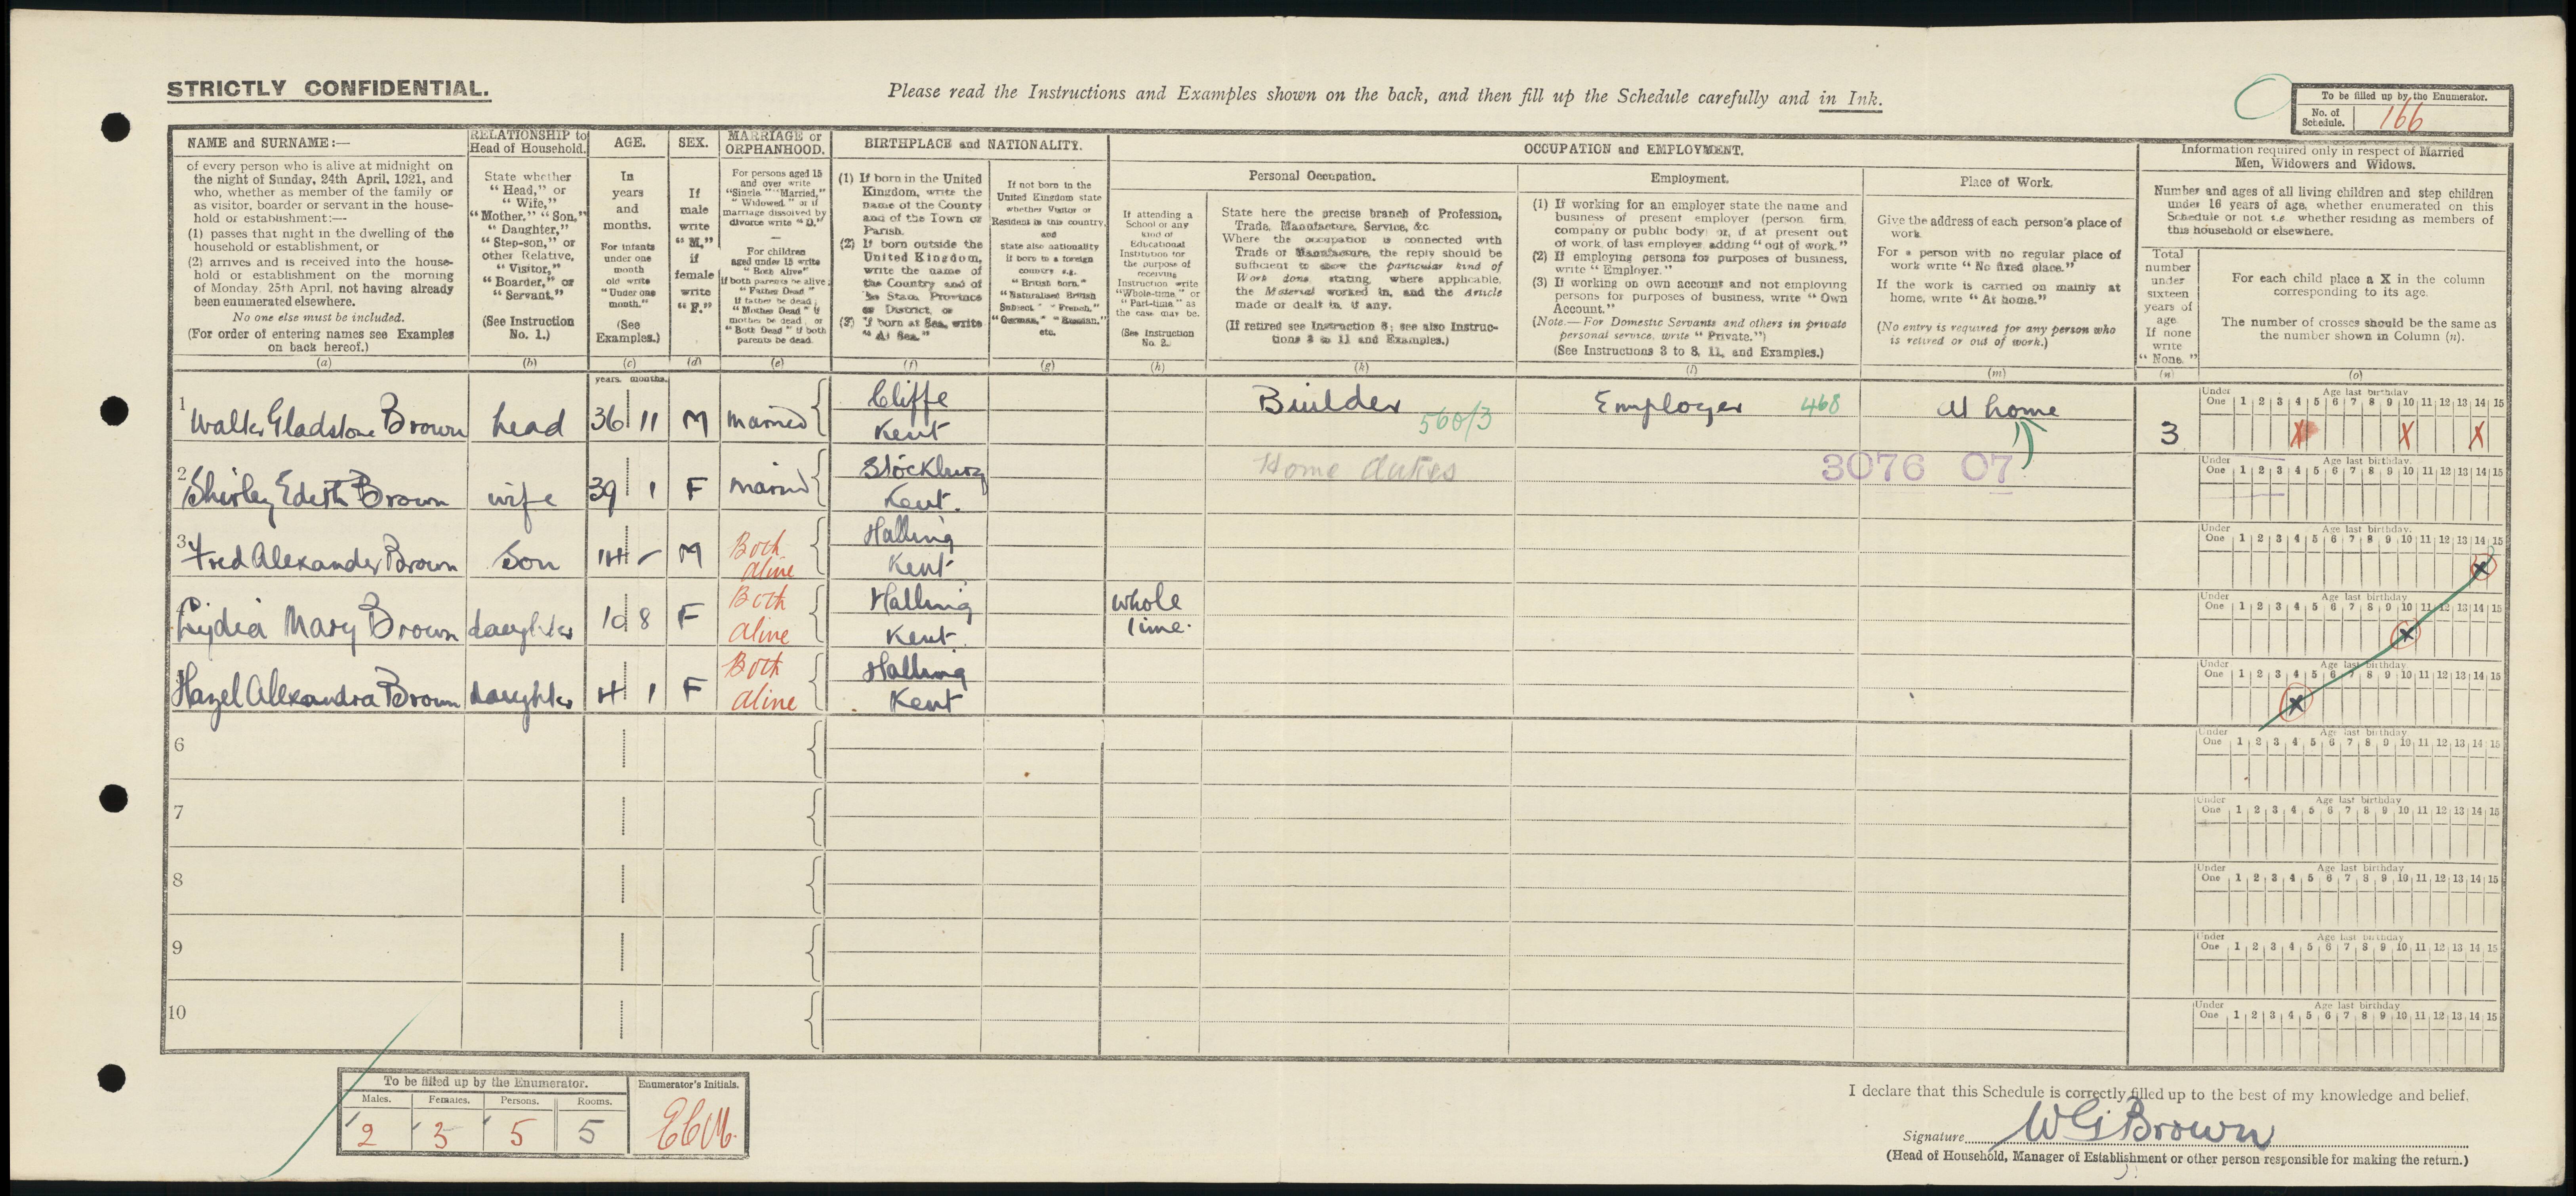 STRICTLY CONFIDENTIAL.
Please read the Instructions and Examples shown on the back, and then fill up the Schedule carefully and in Ink.
To be filled up by the Enumerator.
No. of Schedule. 166
NAME and SURNAME:—
of every person who is alive at midnight on
the night of Sunday, 24th April, 1921, and
who, whether as member of the family or
as visitor, boarder or servant in the house-
hold or establishment:—
(1) passes that night in the dwelling of the
household or establishment, or
(2) arrives and is received into the house-
hold or establishment on the morning
of Monday, 25th April, not having already
been enumerated elsewhere.
No one else must be included.
(For order of entering names see Examples
on back hereof.)
(a)
RELATIONSHIP to
Head of Household.
State whether
"Head," or
"Wife,"
"Mother." "Son,"
"Daughter,"
"Step-son," or
other Relative,
"Visitor,"
"Boarder," or
"Servant."
(See Instruction
No. 1.)
(b)
AGE.
In
years
and
months.
For infants
under one
month
old write
"Under one
month."
(See
Examples.)
(c)
SEX.
If
male
write
"M,"
if
female
write
"F."
(d)
MARRIAGE or
ORPHANHOOD.
For persons aged 15
and over write
"Single," "Married,"
"Widowed," or if
marriage dissolved by
divorce write "D."
—
For children
aged under 15 write
"Both Alive"
if both parents be alive;
"Father Dead"
if father be dead;
"Mother Dead" if
mother be dead, or
"Both Dead" if both
parents be dead.
(e)
BIRTHPLACE and NATIONALITY.
(1) If born in the United
Kingdom, write the
name of the County
and of the Town or
Parish.
(2) If born outside the
United Kingdom,
write the name of
the Country and of
the State, Province
or District, or
(3) if born at Sea, write
"At Sea."
(f)
If not born in the
United Kingdom state
whether Visitor or
Resident in this country,
and
state also nationality
if born in a foreign
country e.g.
"British born."
"Naturalised British
Subject." "French,"
"German," "Russian,"
etc.
(g)
OCCUPATION and EMPLOYMENT.
If attending a
School or any
kind of
Educational
Institution for
the purpose of
receiving
Instruction write
"Whole-time," or
"Part-time," as
the case may be.
(See Instruction
No. 2.)
(h)
Personal Occupation.
State here the precise branch of Profession,
Trade, Manufacture, Service, &c.
Where the occupation is connected with
Trade or Manufacture, the reply should be
sufficient to show the particular kind of
Work done, stating, where applicable,
the Material worked in, and the Article
made or dealt in, if any.
(If retired see Instruction 8; see also Instruc-
tions 3 to 11 and Examples.)
(k)
Employment.
(1) If working for an employer state the name and
business of present employer (person, firm,
company or public body) or, if at present out
of work, of last employer, adding "out of work."
(2) If employing persons for purposes of business,
write "Employer."
(3) If working on own account and not employing
persons for purposes of business, write "Own
Account."
(Note.—For Domestic Servants and others in private
personal service, write "Private.")
(See Instructions 3 to 8, 11, and Examples.)
(l)
Place of Work.
Give the address of each person's place of
work.
For a person with no regular place of
work write "No fixed place."
If the work is carried on mainly at
home, write "At home."
(No entry is required for any person who
is retired or out of work.)
(m)
Information required only in respect of Married
Men, Widowers and Widows.
Number and ages of all living children and step children
under 16 years of age, whether enumerated on this
Schedule or not i.e. whether residing as members of
this household or elsewhere.
Total
number
under
sixteen
years of
age.
If none
write
"None."
(n)
For each child place a X in the column
corresponding to its age.
The number of crosses should be the same as
the number shown in Column (n).
(o)
years. months.
1 Walter Gladstone Brown head 36 11 M Married Cliffe Kent Builder 560/3 Employer 468 At home 3
Under One 1 2 3 4 5 6 7 8 9 10 11 12 13 14 15 Age last birthday
X X X
2 Shirley Edith Brown wife 39 1 F Married Stockbury Kent. Home duties 3076 07
Under One 1 2 3 4 5 6 7 8 9 10 11 12 13 14 15 Age last birthday.
3 Fred Alexander Brown Son 14 – M Both alive Halling Kent
Under One 1 2 3 4 5 6 7 8 9 10 11 12 13 14 15 Age last birthday.
X
Lydia Mary Brown daughter 10 8 F Both alive Halling Kent. whole time.
Under One 1 2 3 4 5 6 7 8 9 10 11 12 13 14 15 Age last birthday
X
Hazel Alexandra Brown daughter 4 1 F Both alive Halling Kent
Under One 1 2 3 4 5 6 7 8 9 10 11 12 13 14 15 Age last birthday
X
6
Under One 1 2 3 4 5 6 7 8 9 10 11 12 13 14 15 Age last birthday
7
Under One 1 2 3 4 5 6 7 8 9 10 11 12 13 14 15 Age last birthday
8
Under One 1 2 3 4 5 6 7 8 9 10 11 12 13 14 15 Age last birthday
9
Under One 1 2 3 4 5 6 7 8 9 10 11 12 13 14 15 Age last birthday
10
Under One 1 2 3 4 5 6 7 8 9 10 11 12 13 14 15 Age last birthday
To be filled up by the Enumerator.
Males. Females. Persons. Rooms.
2 3 5 5
Enumerator's Initials.
I declare that this Schedule is correctly filled up to the best of my knowledge and belief.
Signature W G Brown
(Head of Household, Manager of Establishment or other person responsible for making the return.)